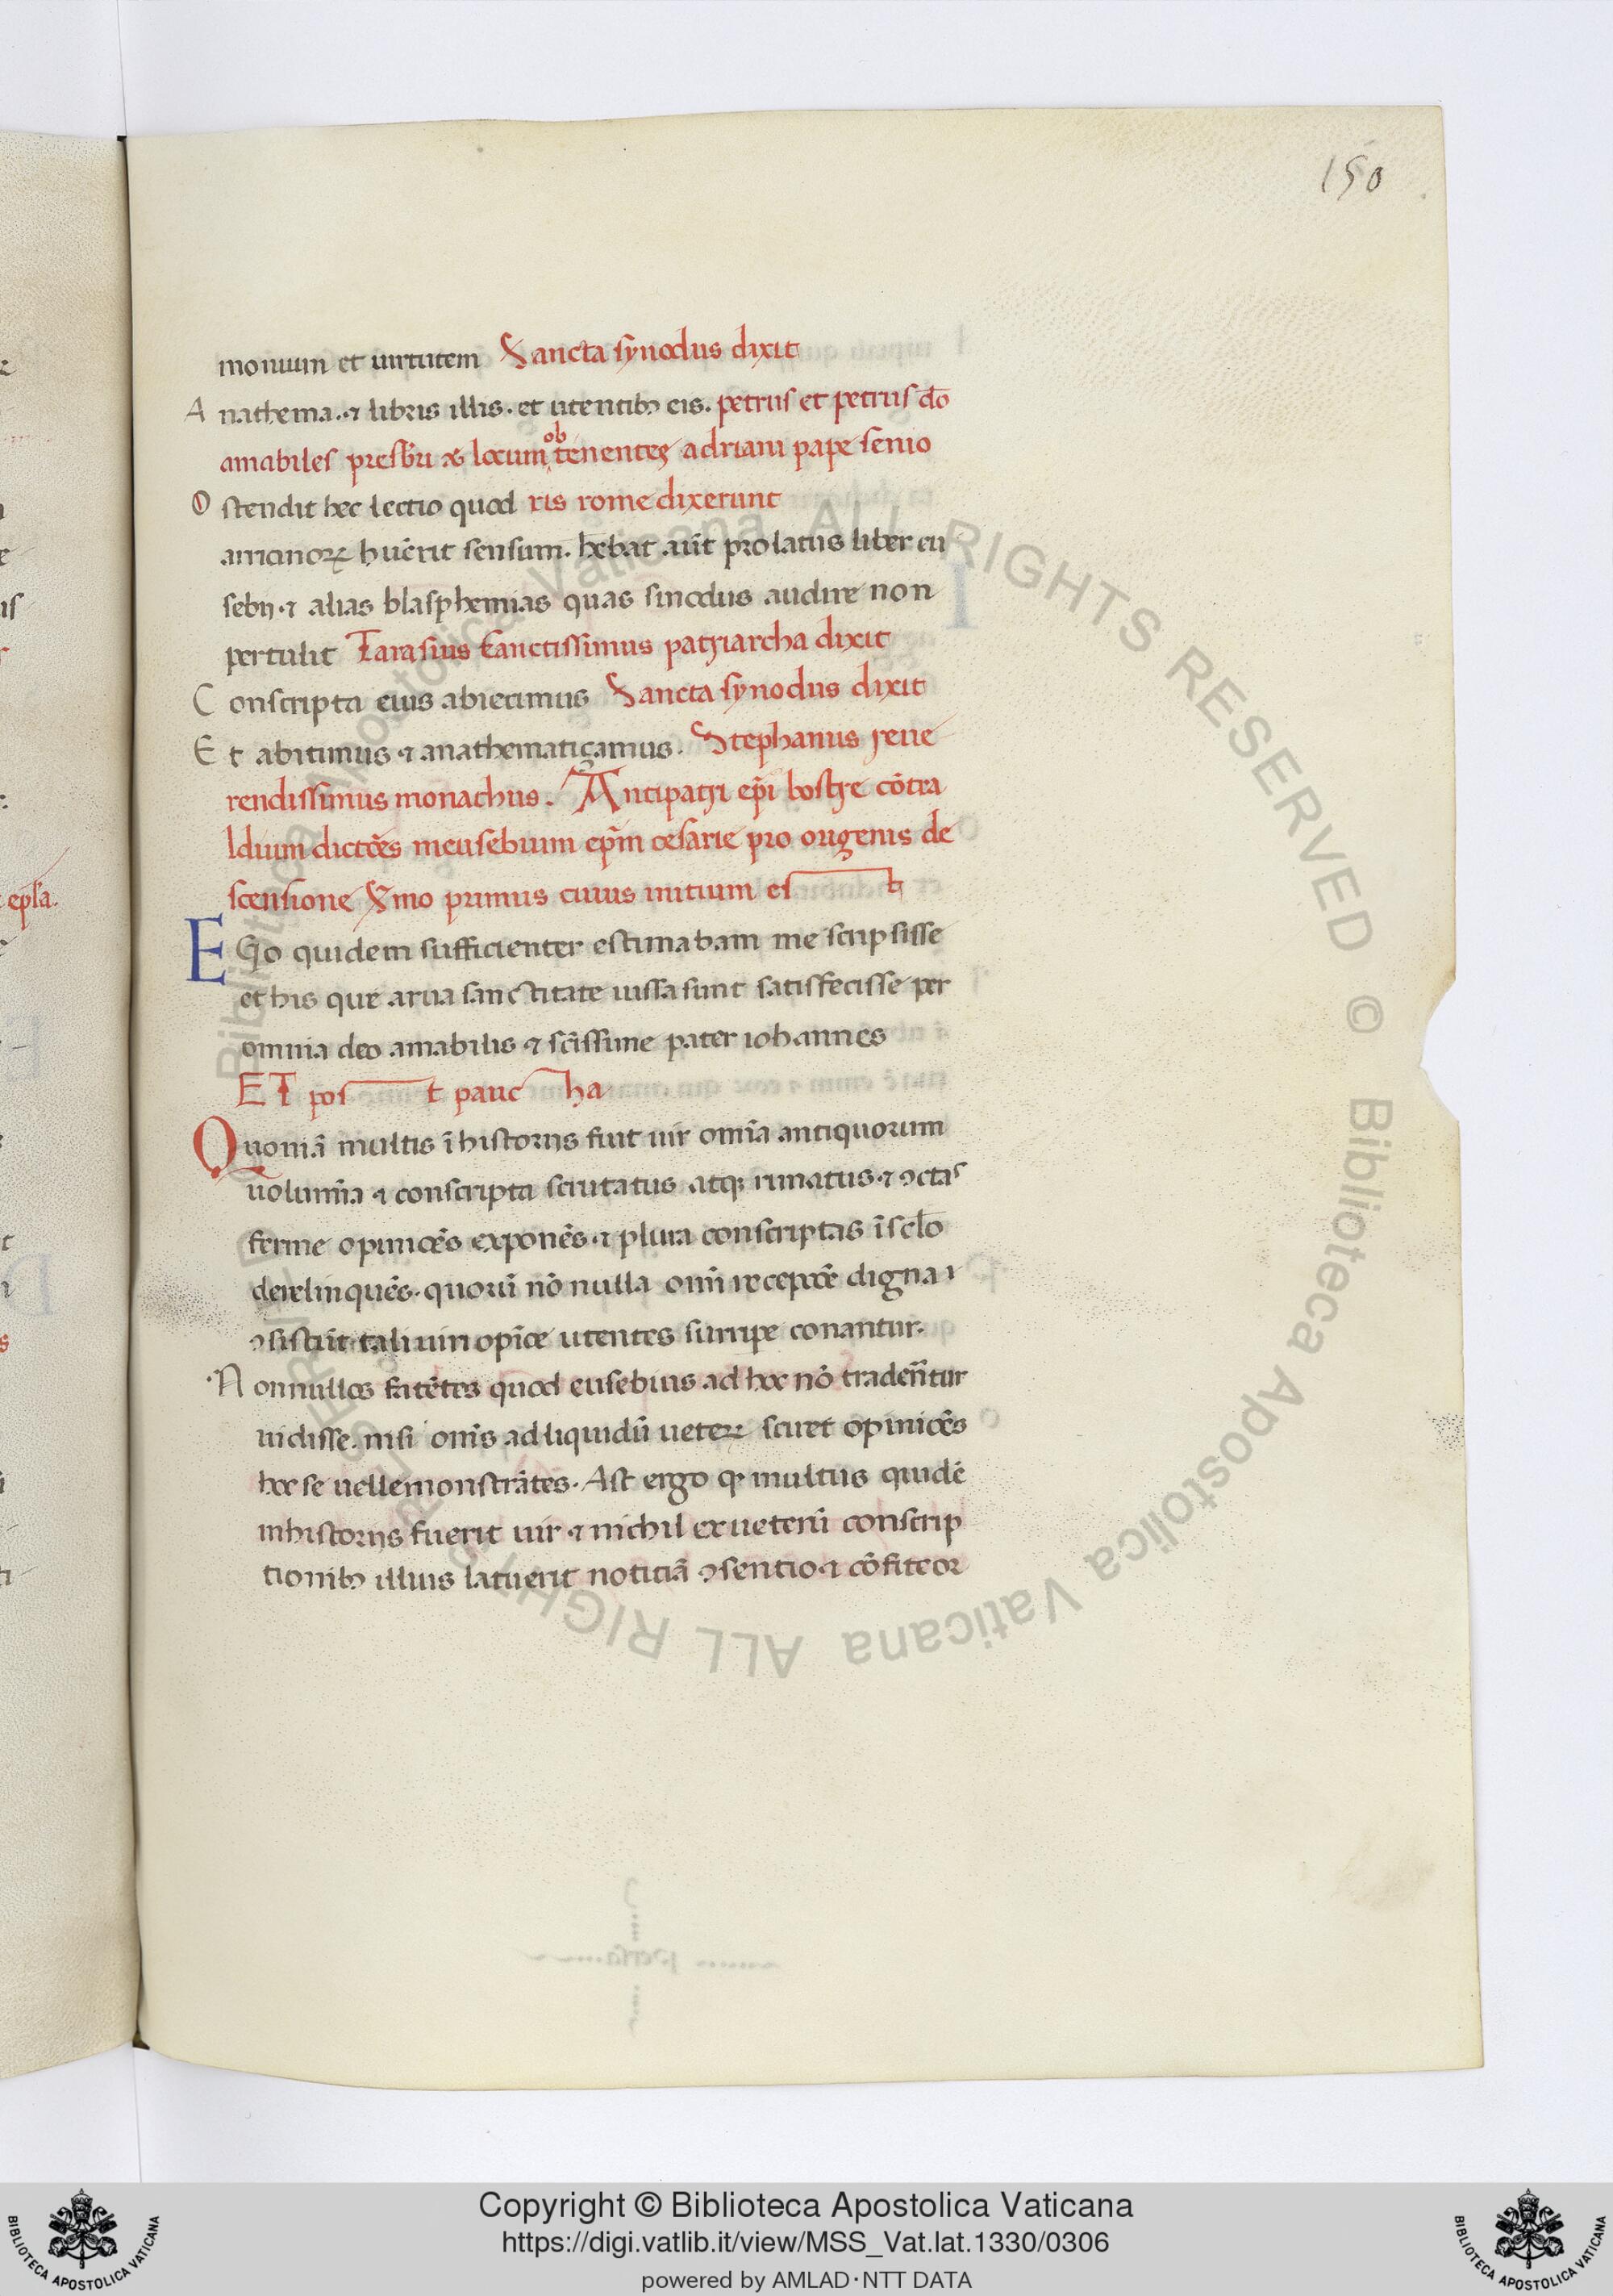 150
monium et uirtutem Sancta synodus dixit
Anathema. ⁊ libris illis. et utentibꝫ eis. petrus et petrus do̅
amabiles presb̅ri ⁊ locum obtenentes adriani pape senio
Ostendit hec lectio quod ris rome dixerunt
arrianoꝝ hu̅erit sensum. he̅bat aut̅ prolatus liber eu
sebij. ⁊ alias blasphemias quas sinodus audire non
pertulit Tarasius sanctissimus patriarcha dixit
Conscripta eius abiecimus Sancta synodus dixit
Et abitimus ⁊ anathematiçamus. Stephanus reue
rendissimus monachus. Antipatri ep̅i bostre co̅tra
dicto̅es eusebium ep̅m cesarie pro origenis de
scensione S̅mo primus cuius initium est h
EGo quidem sufficienter estimabam me scripsisse
et his que a tua sanctitate iussa sunt satisfecisse per
omnia deo amabilis ⁊ sc̅issime pater iohannes
ET post pauc ha
Quonia̅ multis i̅ historijs fuit uir omi̅a antiquorum
uolumi̅a ⁊ conscripta scrutatus atqꝫ rimatus. ⁊ ꝯctas
ferme opinio̅es expone̅s. ⁊ plura conscriptas i̅ sclo̅
derelinque̅s. quoru̅ no̅ nulla omi̅ receptio̅e digna
ꝯsistu̅t. tali uiri opio̅e utentes surripe conantur.
Nonnullos fate̅tes quod eusebius ad hoc no̅ traderentur
uidisse. nisi om̅s ad liquidu̅ ueteꝝ sciret opinio̅es
hoc se uelle monstra̅tes. Ast ergo qꝫ multus quide̅
in historijs fuerit uir ⁊ nichil ex ueteru̅ conscrip
tionibꝫ illius latuerit notitia̅ ꝯsentio. ⁊ co̅fiteor
epl̅a.
Copyright © Biblioteca Apostolica Vaticana
https://digi.vatlib.it/view/MSS_Vat.lat.1330/0306
powered by AMLAD·NTT DATA
BIBLIOTECA APOSTOLICA VATICANA
BIBLIOTECA APOSTOLICA VATICANA
Biblioteca Apostolica Vaticana ALL RIGHTS RESERVED © Biblioteca Apostolica Vaticana ALL RIGHTS RESERVED ©